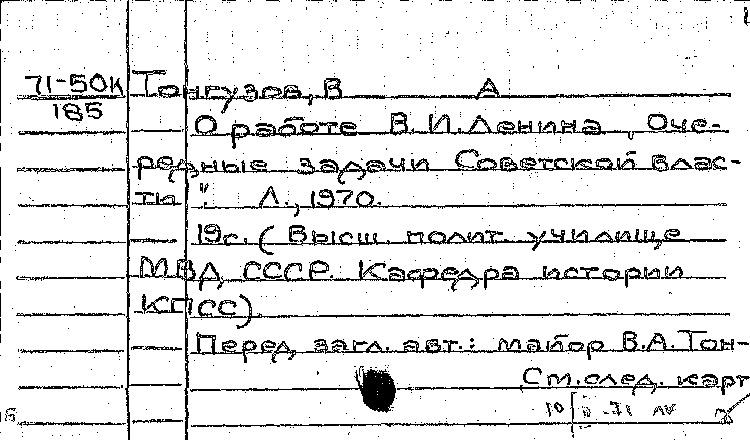 71-50К Тонгузов, В А
185
О работе В.И.Ленина „Оче-
редные задачи Советской влас-
ти". Л., 1970.
19с. (Высш. полит. училище
МВД СССР. Кафедра истории
КПСС).
Перед загл. авт.: майор В.А.Тон-
См.след. карт